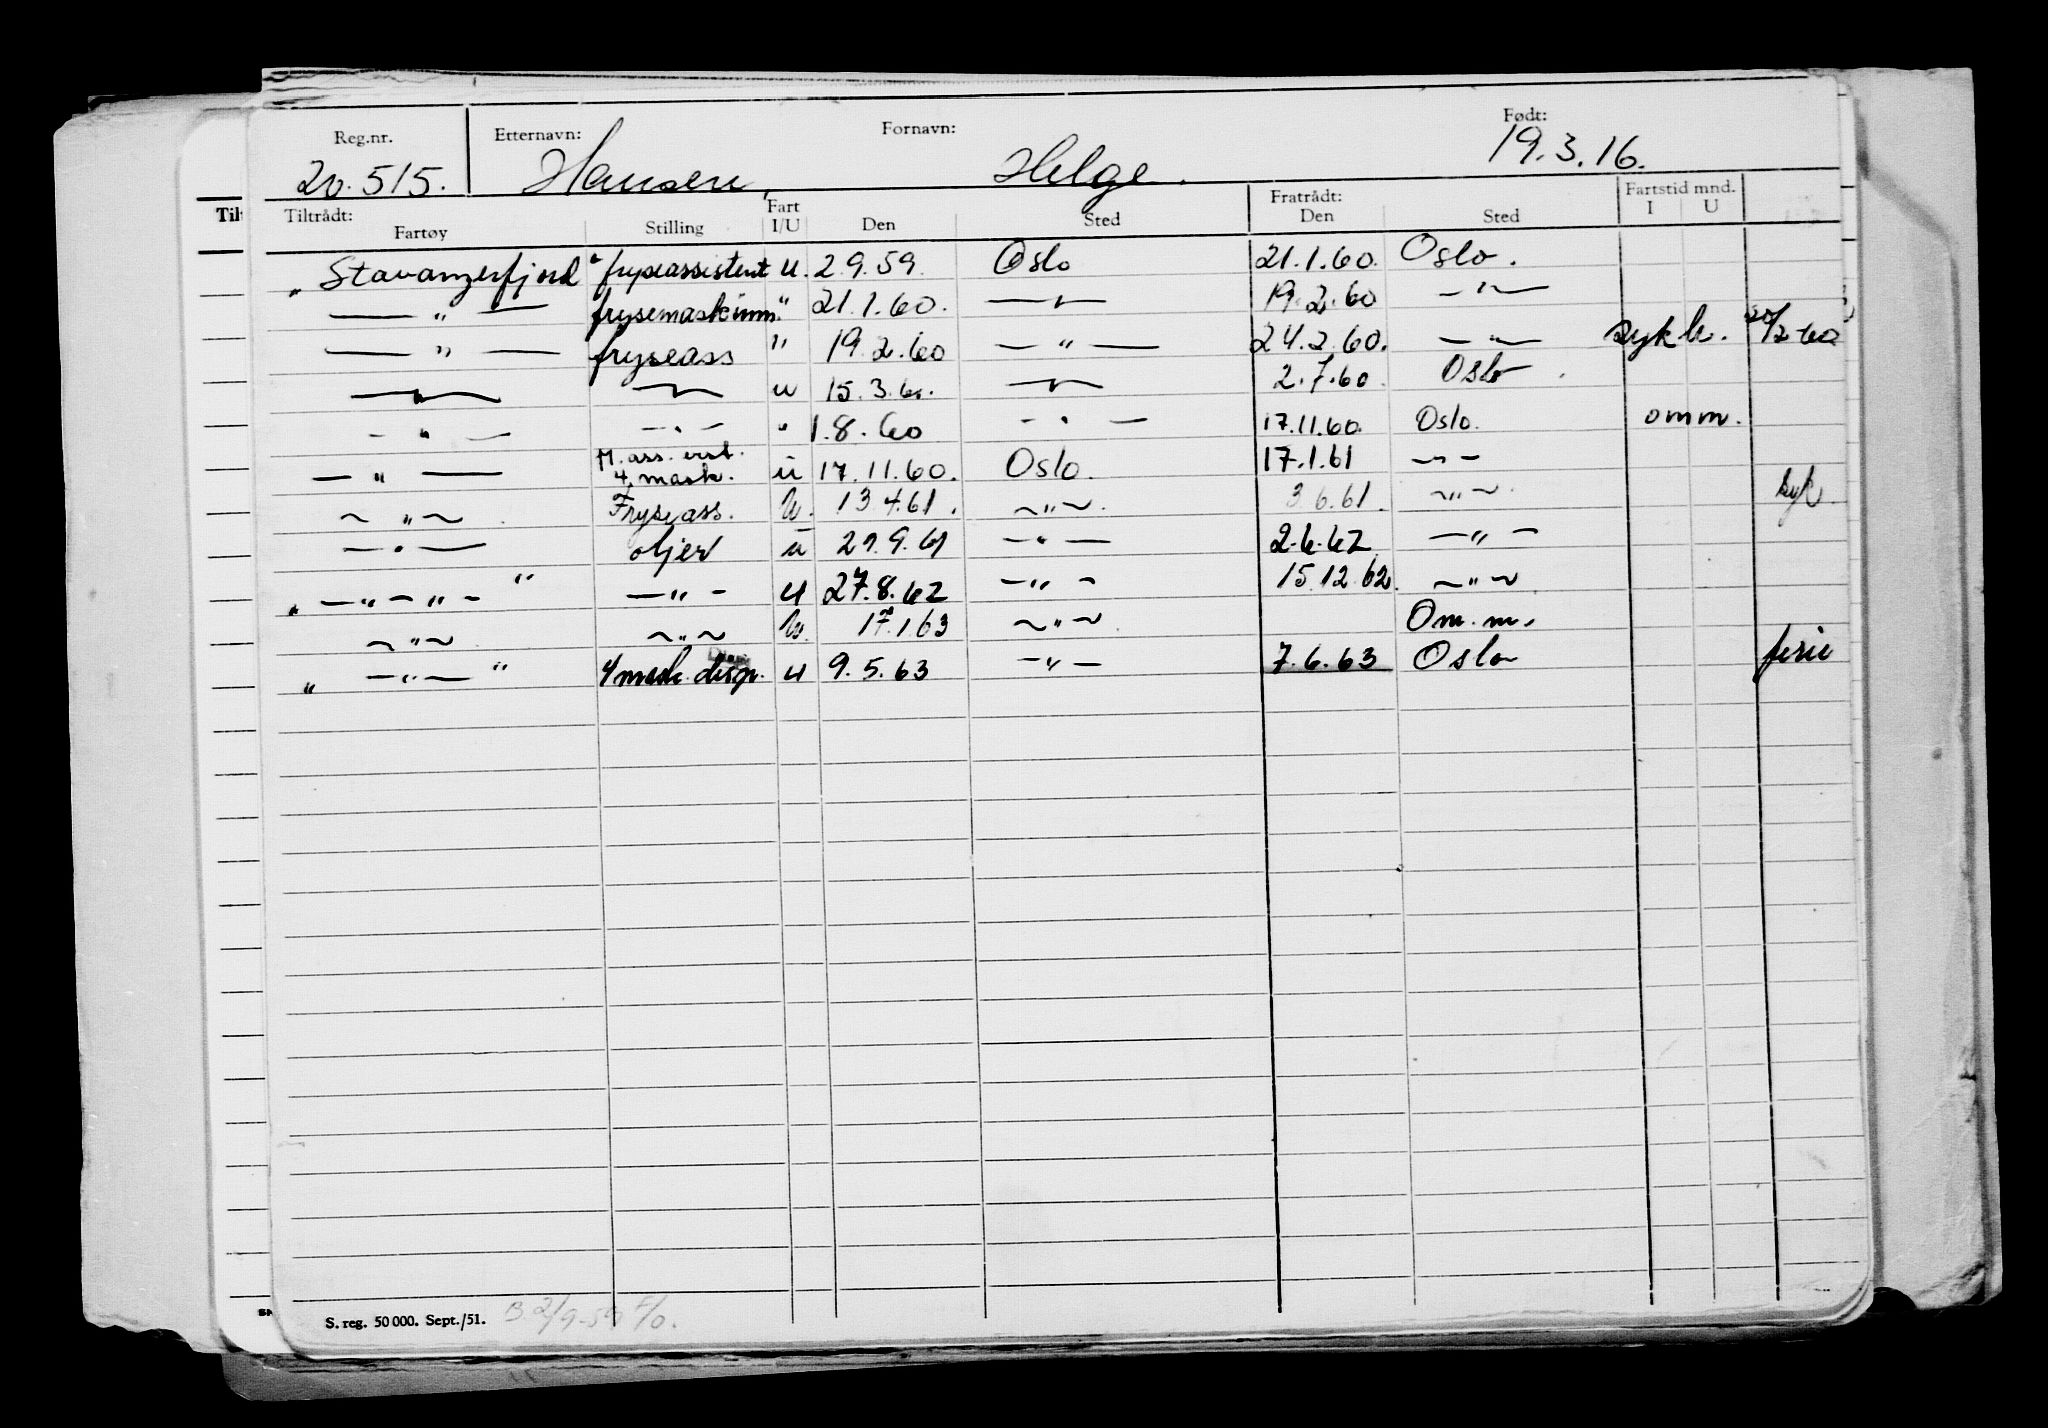 Reg.nr. Etternavn: Fornavn: Født:
20.515. Hansen, Helge. 19.3.16.
Tiltrådt: Fart Fratrådt: Fartstid mnd.
Fartøy Stilling I/U Den Sted Den Sted I U
"Stavangerfjord" fryseassistent u. 2.9.59. Oslo 21.1.60. Oslo.
— " — frysemaskinm. " 21.1.60. — " — 19.2.60 — " —
— " — fryseass " 19.2.60 — " — 24.2.60. — " — sykh. 25/2-60
— " — — " — u 15.3.60. — " — 2.7.60. Oslo.
— " — — " — " 1.8.60 — " — 17.11.60. Oslo. omm.
— " — M. ass. vst. 4. mask. u 17.11.60. Oslo. 17.1.61 — " —
~ " ~ Fryseass. U. 13.4.61. ~ " ~ 3.6.61. ~ " ~ syk.
— " — oljer u 29.9.61 — " — 2.6.62 — " —
" — " — " — " — " — u 27.8.62 — " — 15.12.62. ~ " ~
~ " ~ ~ " ~ U. 17.1.63 ~ " ~ Om.m.
" — " — " 4 mask. disp. u 9.5.63 — " — 7.6.63 Oslo ferie
S. reg. 50 000. Sept./51. B 2/9-59 F/O.
Til